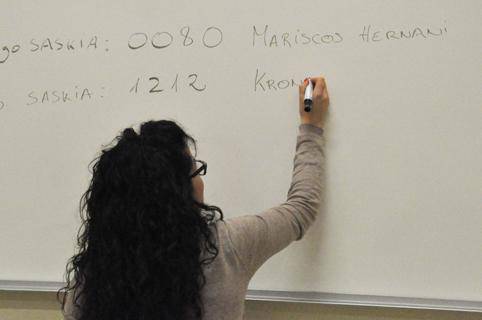 go SASKIA: 0080 MARISCOS HERNANI
SASKIA: 1212 KRON